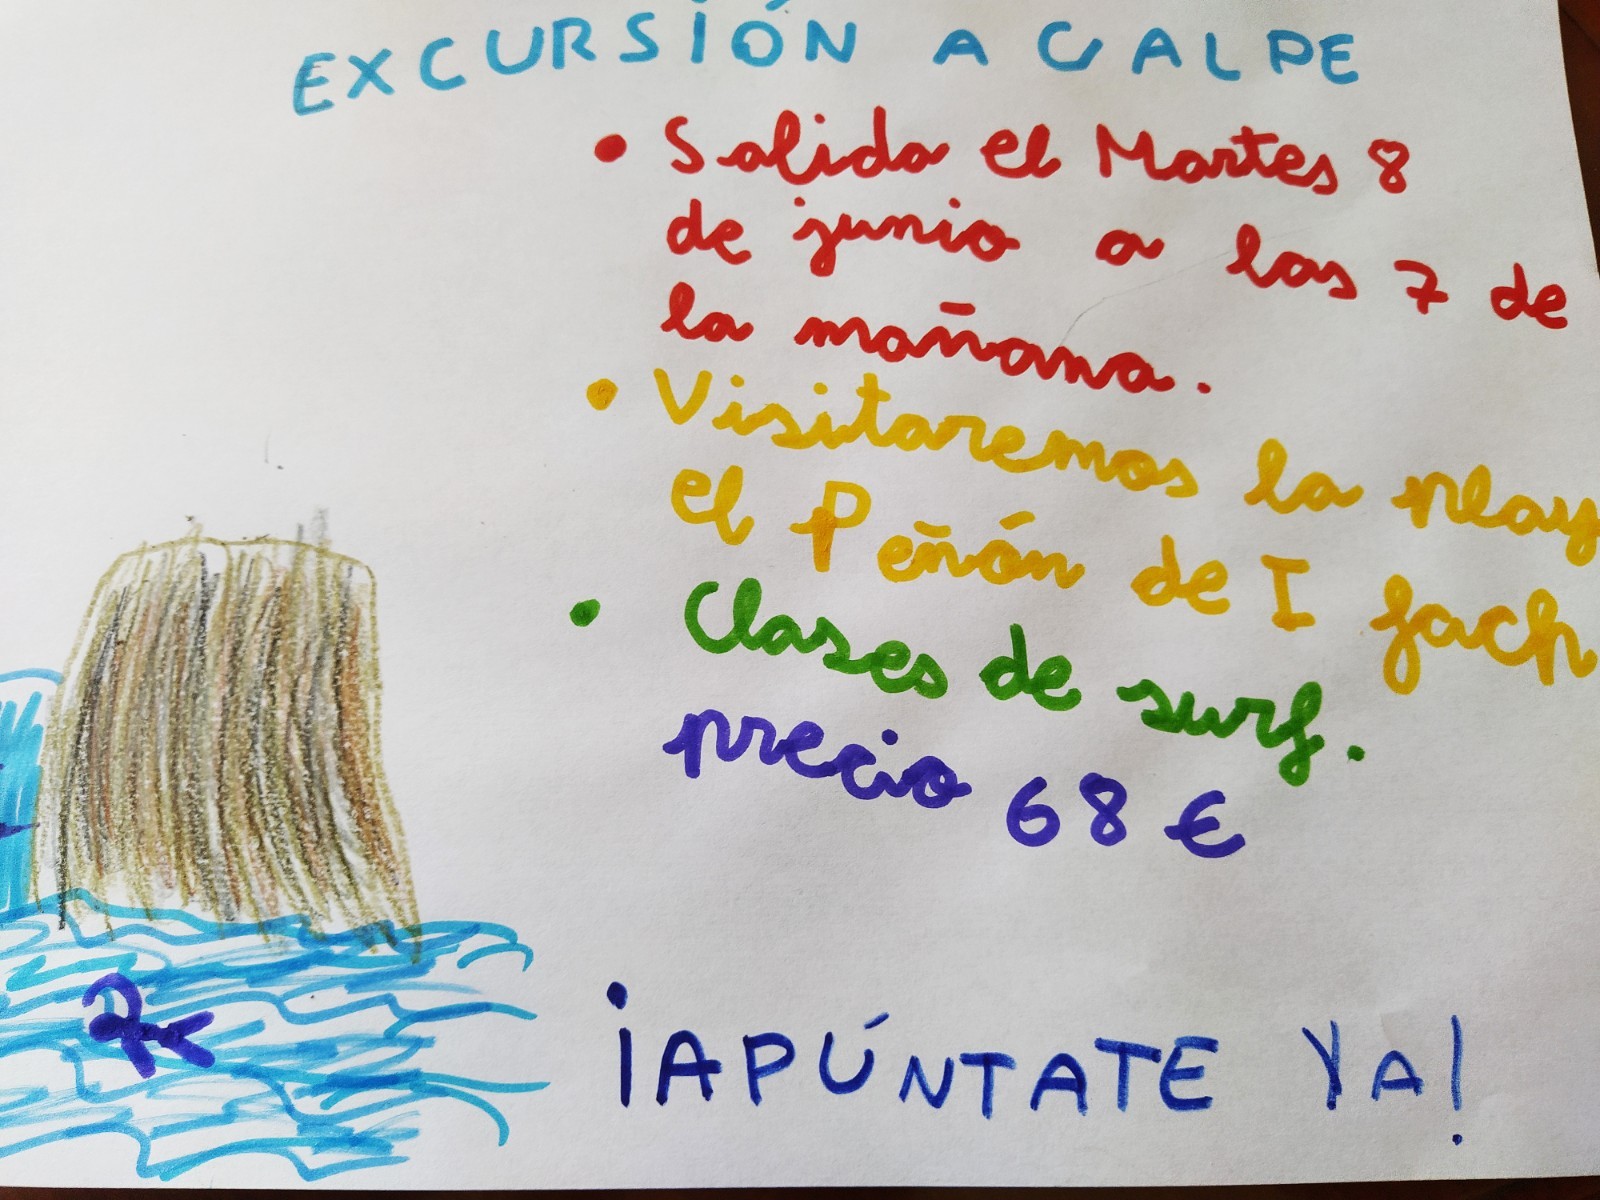 EXCURSIÓN A CALPE
• Salida el Martes 8
de junio a las 7 de
la mañana.
• Visitaremos la play
el Peñón de Ifach
• Clases de surf.
precio 68 €
¡APÚNTATE YA!